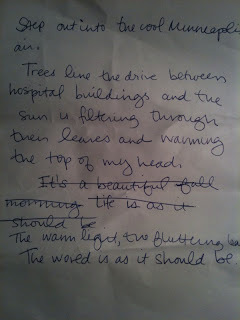 Step out into the cool Minneapolis
air.
Trees line the drive between
hospital buildings and the
sun is filtering through
their leaves and warming
the top of my head.
It's a beautiful fall
morning. Life is as it
should be.
The warm light, the fluttering lea
The world is as it should be